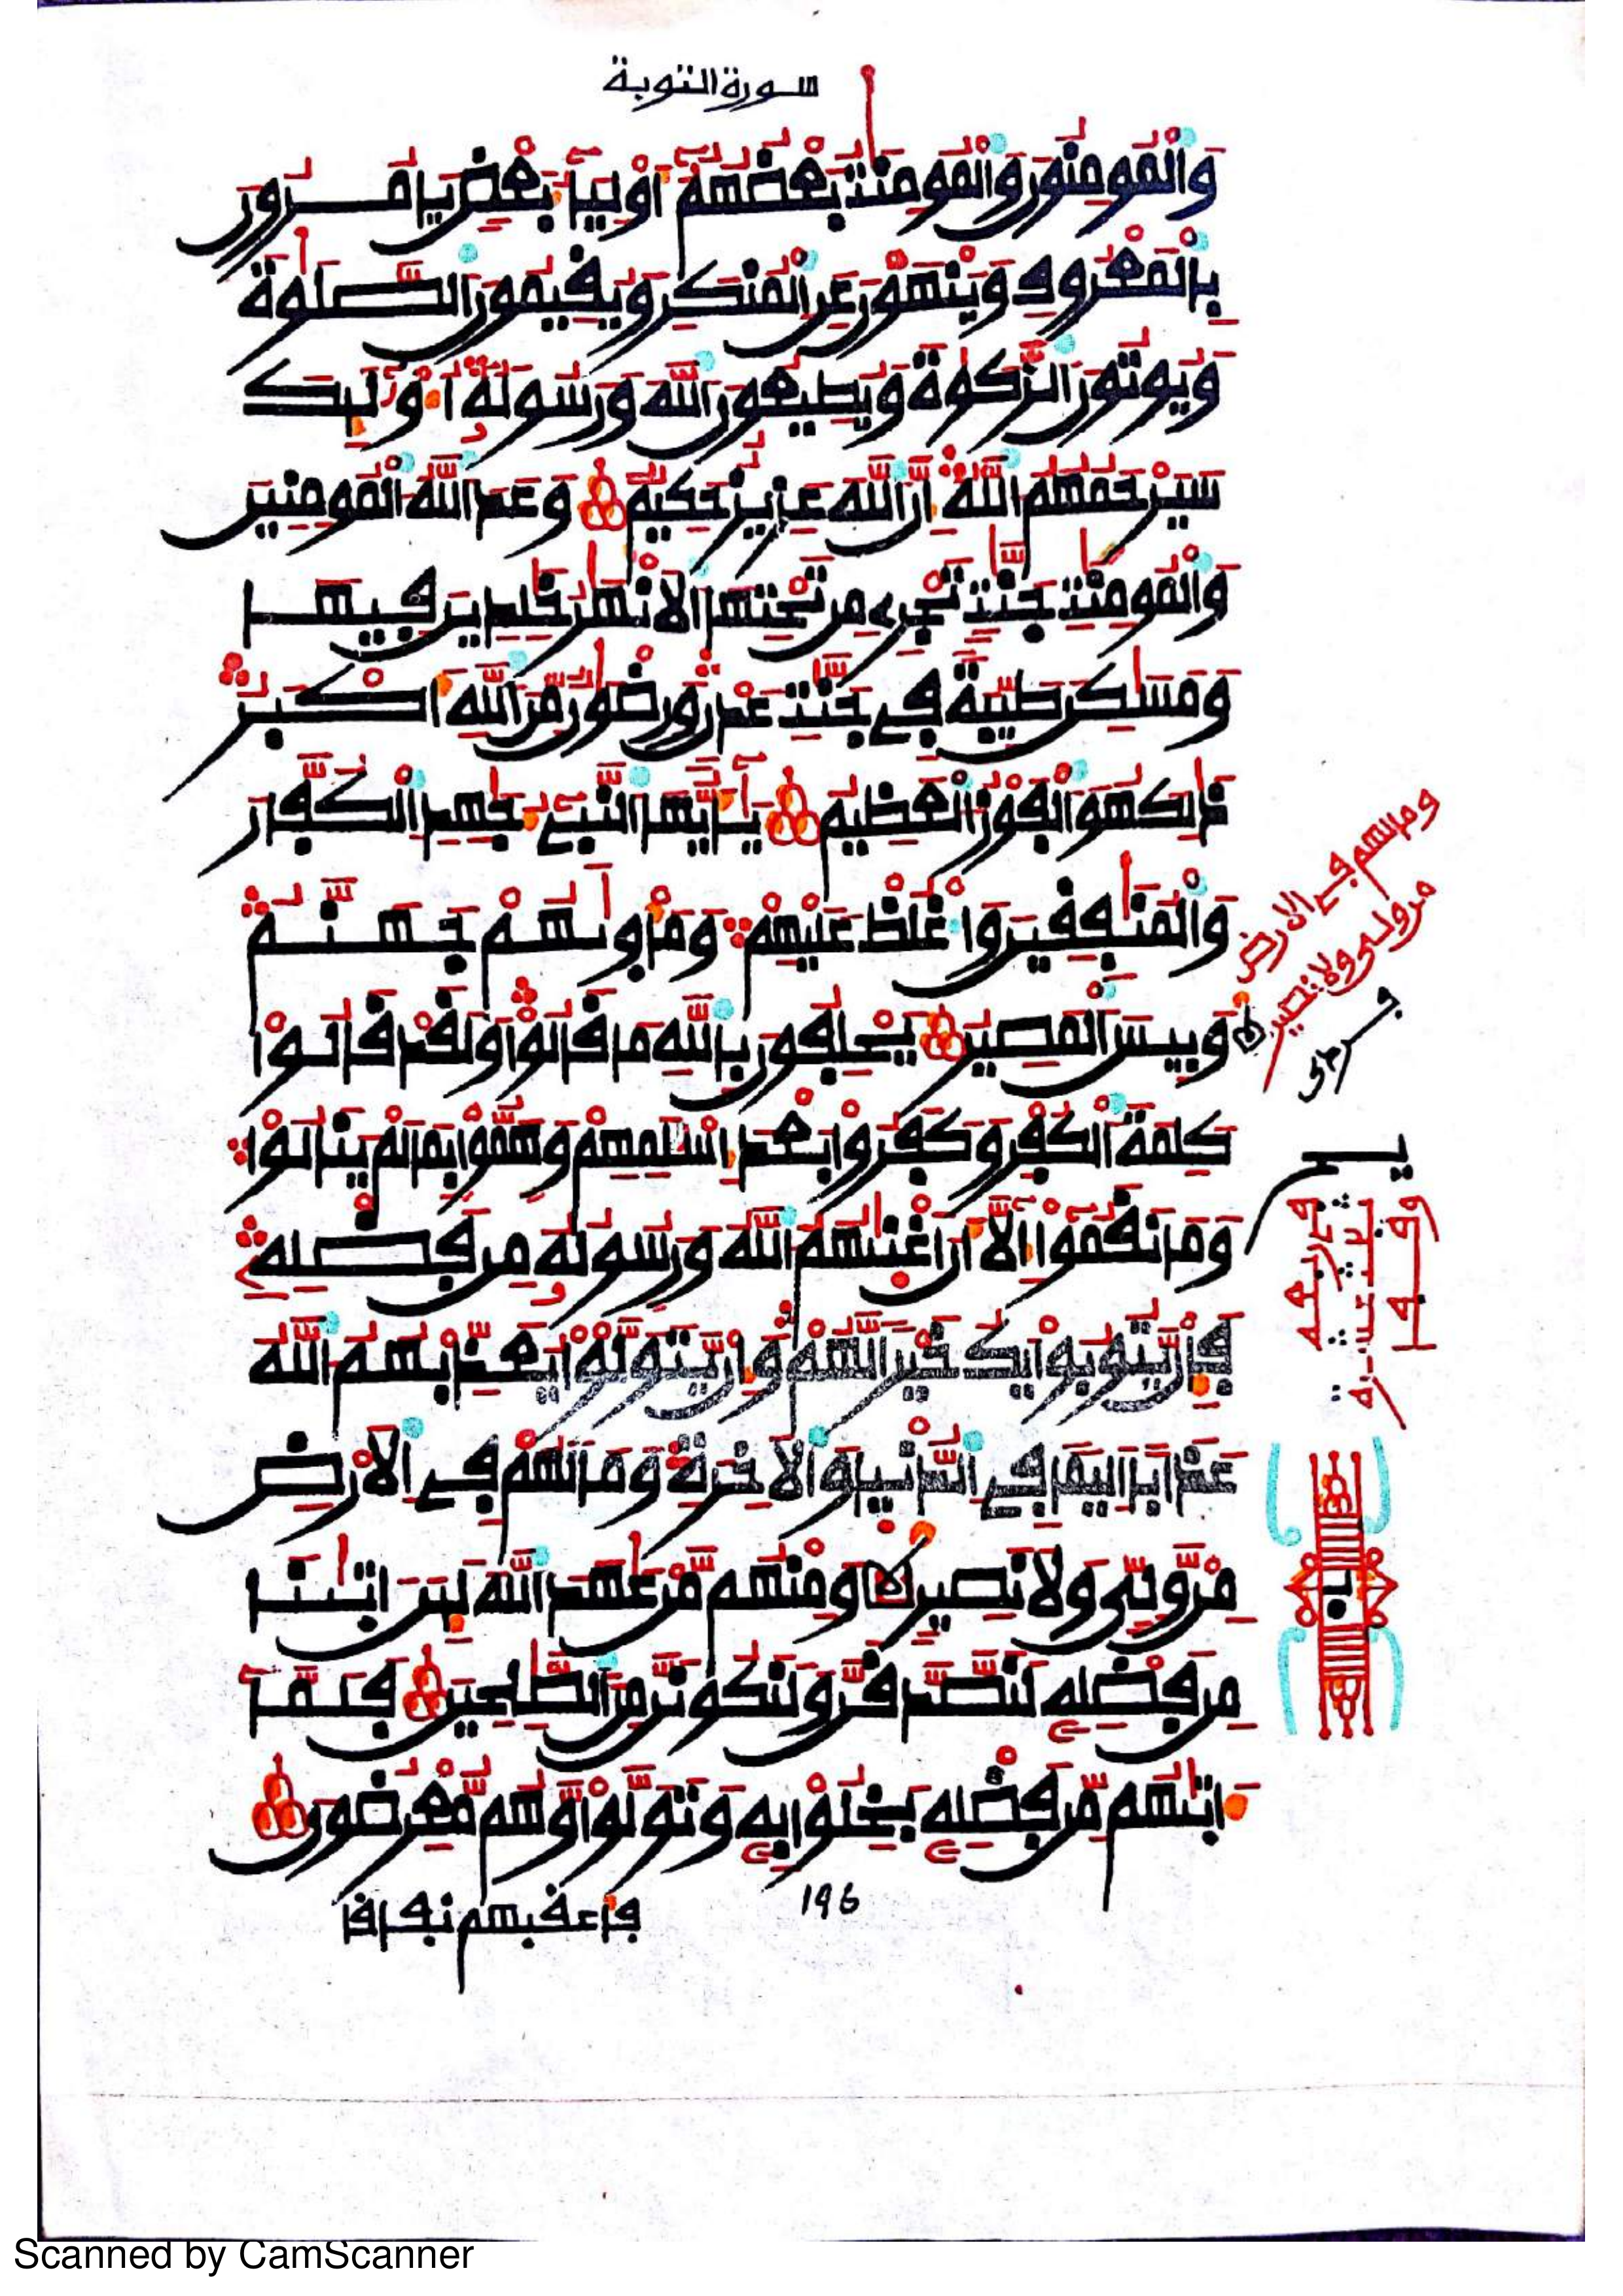 سورة التوبة
وَالْمُومِنُونَ وَالْمُومِنَٰتُ بَعْضُهُمُۥٓ أَوْلِيَآءُ بَعْضٖ يَامُرُونَ
بِالْمَعْرُوفِ وَيَنْهَوْنَ عَنِ الْمُنكَرِ وَيُقِيمُونَ الصَّلَوٰةَ
وَيُوتُونَ الزَّكَوٰةَ وَيُطِيعُونَ اللَّهَ وَرَسُولَهُۥٓ أُوْلَٰٓئِكَ
سَيَرْحَمُهُمُ اللَّهُ إِنَّ اللَّهَ عَزِيزٌ حَكِيمٌ وَعَدَ اللَّهُ الْمُومِنِينَ
وَالْمُومِنَٰتِ جَنَّٰتٖ تَجْرِے مِن تَحْتِهَا الَانْهَٰرُ خَٰلِدِينَ فِيهَا
وَمَسَٰكِنَ طَيِّبَةٗ فِے جَنَّٰتِ عَدْنٖ وَرِضْوَٰنٌ مِّنَ اللَّهِ أَكْبَرُ
ذَٰلِكَ هُوَ الْفَوْزُ الْعَظِيمُ يَٰٓأَيُّهَا النَّبِےٓءُ جَٰهِدِ الْكُفَّارَ
وَالْمُنَٰفِقِينَ وَاغْلُظْ عَلَيْهِمْ وَمَأْوَىٰهُمْ جَهَنَّمُ
وَبِيسَ الْمَصِيرُ يَحْلِفُونَ بِاللَّهِ مَا قَالُواْ وَلَقَدْ قَالُواْ
كَلِمَةَ الْكُفْرِ وَكَفَرُواْ بَعْدَ إِسْلَٰمِهِمْ وَهَمُّواْ بِمَا لَمْ يَنَالُواْ
وَمَا نَقَمُوٓاْ إِلَّآ أَنَ اغْنَىٰهُمُ اللَّهُ وَرَسُولُهُۥ مِن فَضْلِهِۦ
فَإِنْ يَّتُوبُواْ يَكُ خَيْرٗا لَّهُمْ وَإِنْ يَّتَوَلَّوْاْ يُعَذِّبْهُمُ اللَّهُ
عَذَاباً اَلِيماٗ فِے الدُّنْيَا وَالَاخِرَةِ وَمَا لَهُمْ فِے الَارْضِ
مِنْ وَّلِيّٖ وَلَا نَصِيرٖ وَمِنْهُم مَّنْ عَٰهَدَ اللَّهَ لَئِنَ اٰتَىٰنَا
مِن فَضْلِهِۦ لَنَصَّدَّقَنَّ وَلَنَكُونَنَّ مِنَ الصَّٰلِحِينَ فَلَمَّآ
ءَاتَىٰهُم مِّن فَضْلِهِۦ بَخِلُواْ بِهِۦ وَتَوَلَّواْ وَّهُم مُّعْرِضُونَ
196
فأعقبهم نفاقا
وما لهم في الارض
من ولي ولا نصير
Scanned by CamScanner